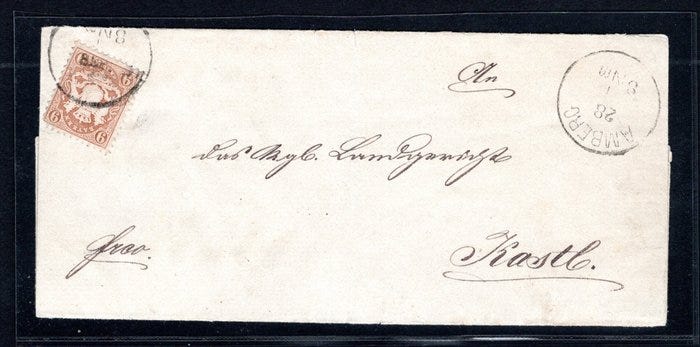 An
das Kgl. Landgericht
frco.
Kastl.
AMBERG
28
1
8 Nm
8 Nm
6
6
6